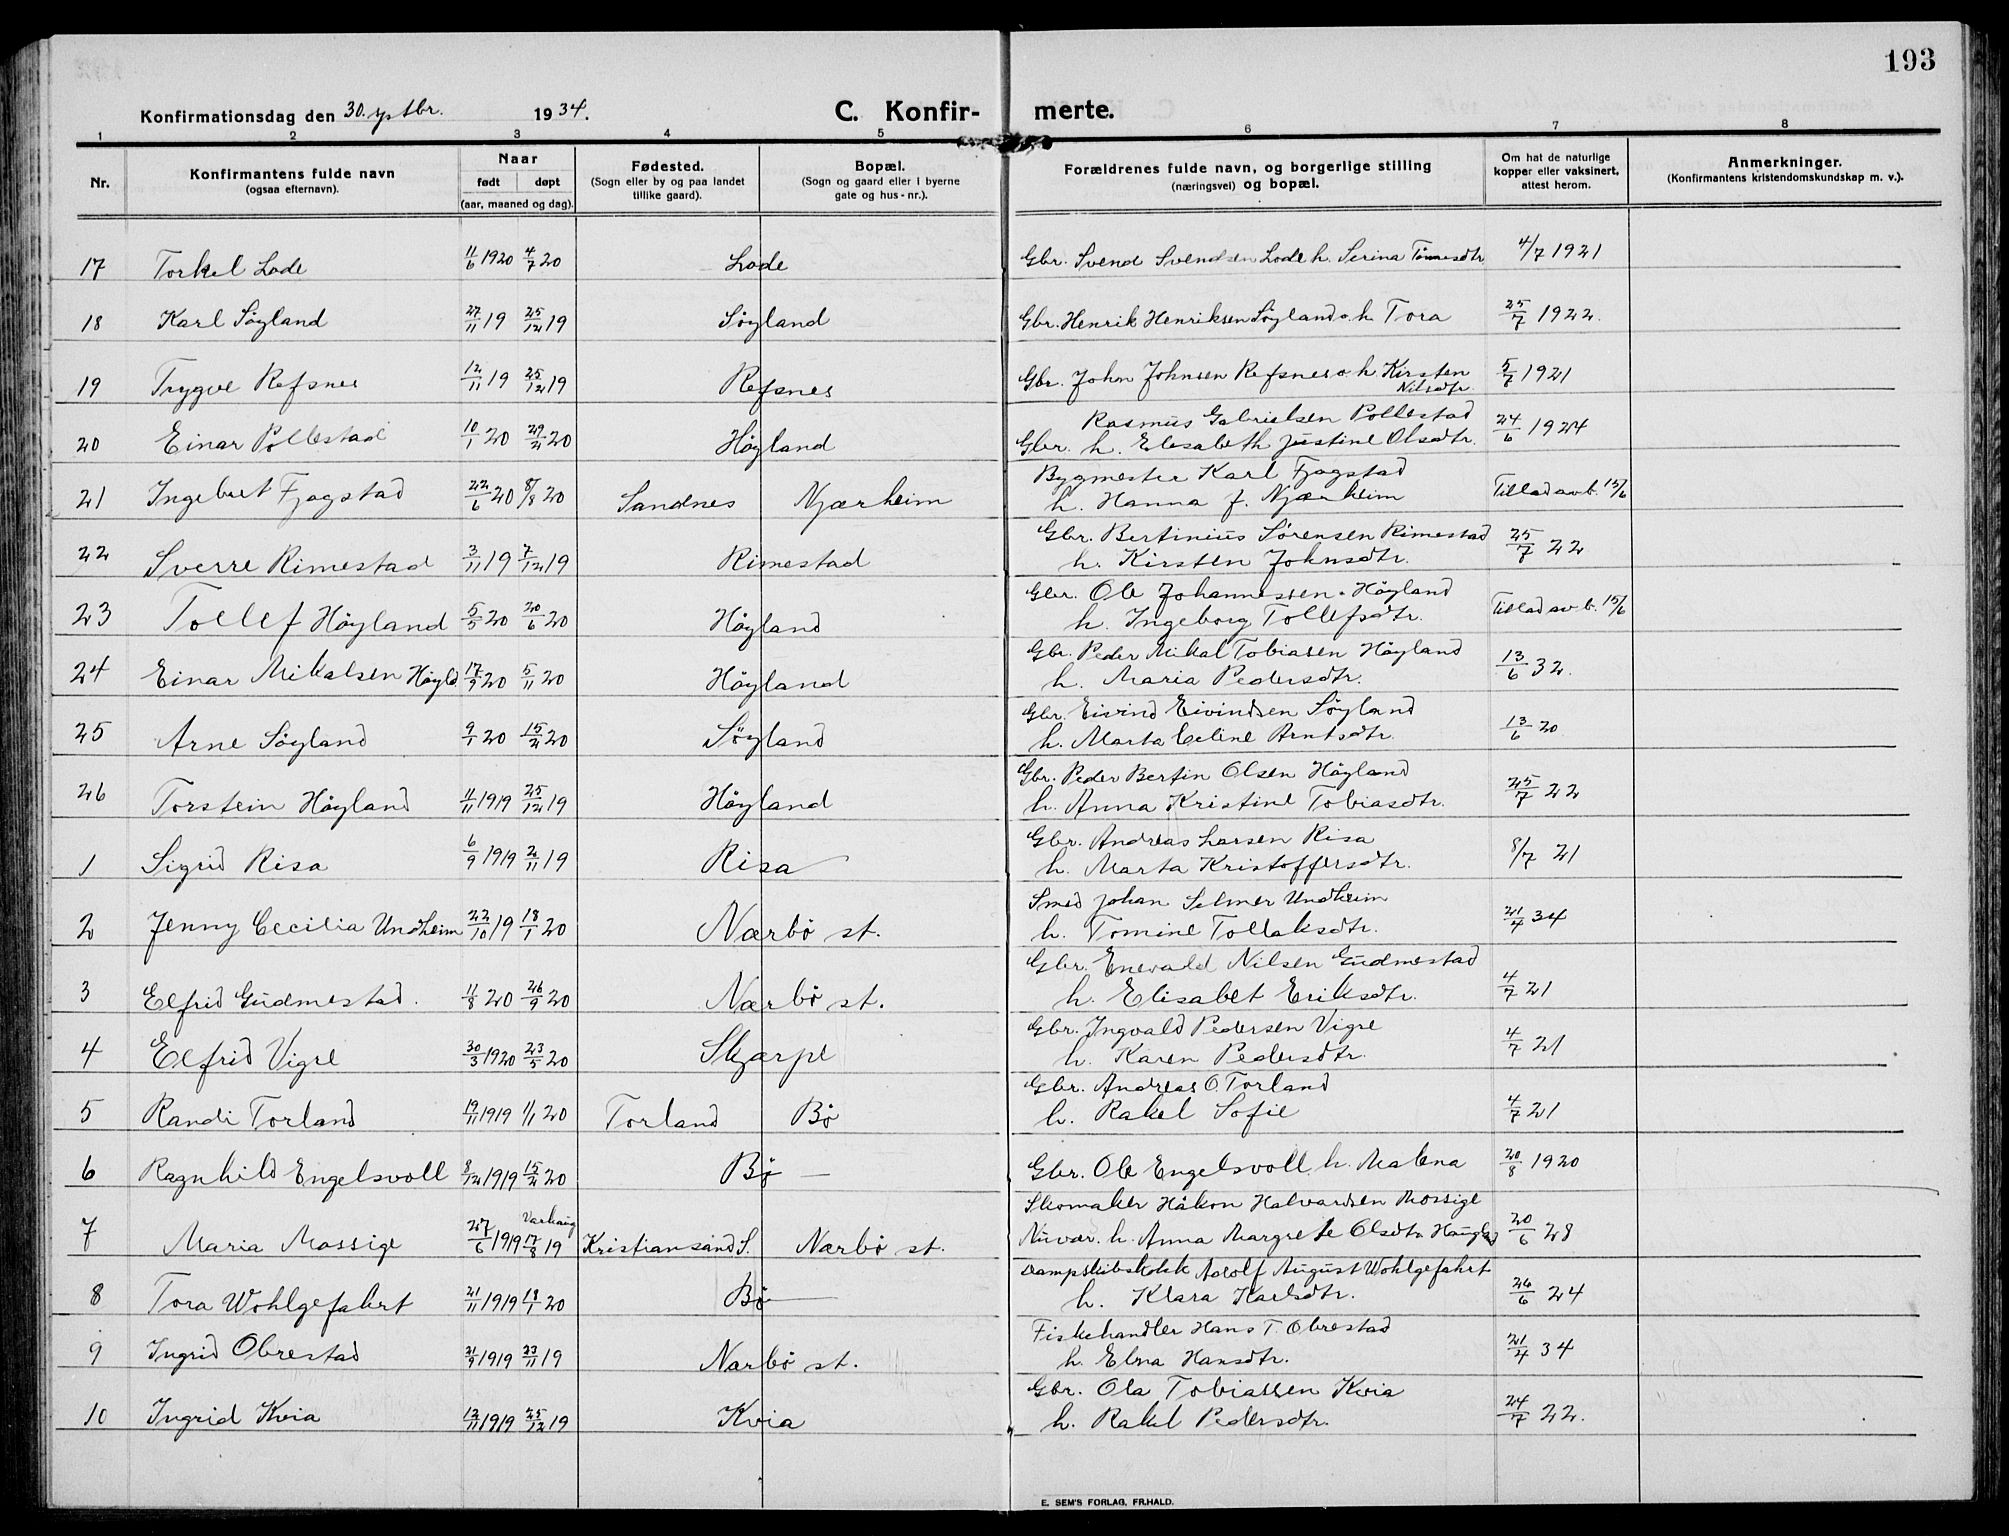 193
Konfirmationsdag den 30. sptbr. 1934.
C. Konfir- merte.
1 2 3 4 5 6 7 8
Nr.
Konfirmantens fulde navn
(ogsaa efternavn).
Naar
født døpt
(aar, maaned og dag).
Fødested.
(Sogn eller by og paa landet
tillike gaard).
Bopæl.
(Sogn og gaard eller i byerne
gate og hus-nr.).
Forældrenes fulde navn, og borgerlige stilling
(næringsvei) og bopæl.
Om hat de naturlige
kopper eller vaksinert,
attest herom.
Anmerkninger.
(Konfirmantens kristendomskundskap m. v.).
17 Torkel Lode 11/6 1920 4/7 20 Lode Gbr. Svend Svendsen Lode h. Serina Tønnesdtr 4/7 1921
18 Karl Söyland 27/11 19 25/12 19 Söyland Gbr. Henrik Henriksen Söyland o. h. Tora 25/7 1922.
19 Trygve Refsnes 12/11 19 25/12 19 Refsnes Gbr. Johan Johnsen Refsnes o. h. Kirsten 5/7 1921
Nilsdtr.
Rasmus Gabrielsen Pollestad
20 Einar Pollestad 10/1 20 29/2 20 Höyland Gbr. h. Elisabeth Justine Olsdtr. 24/6 1924
Bygmester Karl Fjogstad
21 Ingebret Fjogstad 22/6 20 8/8 20 Sandnes Njærheim h. Hanna f. Njærheim Tillad av b. 15/6
Gbr. Bertinius Sörensen Rimestad
22 Sverre Rimestad 3/11 19 7/12 19 Rimestad h. Kirsten Johnsdtr. 25/7 22
Gbr. Ole Johannessen Höyland
23 Tollef Höyland 5/5 20 20/6 20 Höyland h. Ingeborg Tollefsdtr. Tillad av b. 15/6
Gbr. Peder Mikal Tobiasen Höyland
24 Einar Mikalsen Höyld. 17/9 20 5/11 20 Höyland h. Maria Pedersdtr. 13/6 32.
Gbr. Eivind Eivindsen Söyland
25 Arne Söyland 9/1 20 15/2 20 Söyland h. Marta Celine Arntsdtr. 13/6 20
Gbr. Peder Bertin Olsen Höyland
26 Torstein Höyland 11/11 1919 25/12 19 Höyland h. Anna Kristine Tobiasdtr. 25/7 22
Gbr. Andreas Larsen Risa
1 Sigrid Risa 6/9 1919 2/11 19 Risa h. Marta Kristoffersdtr. 8/7 21
Smed Johan Selmer Undheim
2 Jenny Cecilia Undheim 22/10 19 18/1 20 Nærbö st. h. Tomine Tollaksdtr. 21/4 34
Gbr. Enevald Nilsen Gudmestad
3 Elfrid Gudmestad. 11/8 20 26/9 20 Nærbö st. h. Elisabet Eriksdtr. 4/7 21
Gbr. Ingvald Pedersen Vigre
4 Elfrid Vigre 30/3 1920 23/5 20 Skjærpe h. Karen Pedersdtr. 4/7 21
Gbr. Andreas O. Torland
5 Randi Torland 19/11 1919 1/1 20 Torland Bö h. Rakel Sofie 4/7 21
6 Ragnhild Engelsvoll 8/12 1919 15/2 20 Bö Gbr. Ole Engelsvoll h. Malena 20/8 1920
Varhaug Skomaker Håkon Halvardsen Mossige
7 Maria Mossige 27/6 1919 17/8 19 Kristiansand S. Nærbö st. h. Anna Margrete Olsdtr. 20/6 28
Adolf August Wohlgefahrt
8 Tora Wohlgefahrt 21/11 1919 18/1 20 Bö h. Klara Karlsdtr. 26/6 24
Fiskehandler Hans T. Obrestad
9 Ingrid Obrestad 21/9 1919 23/11 19 Nærbö st. h. Elena Hansdtr. 21/4 34
Gbr. Ola Tobiassen Kvia
10 Ingrid Kvia 12/11 1919 25/12 19 Kvia h. Rakel Pedersdtr. 24/7 22.
E. SEM'S FORLAG, FR.HALD.